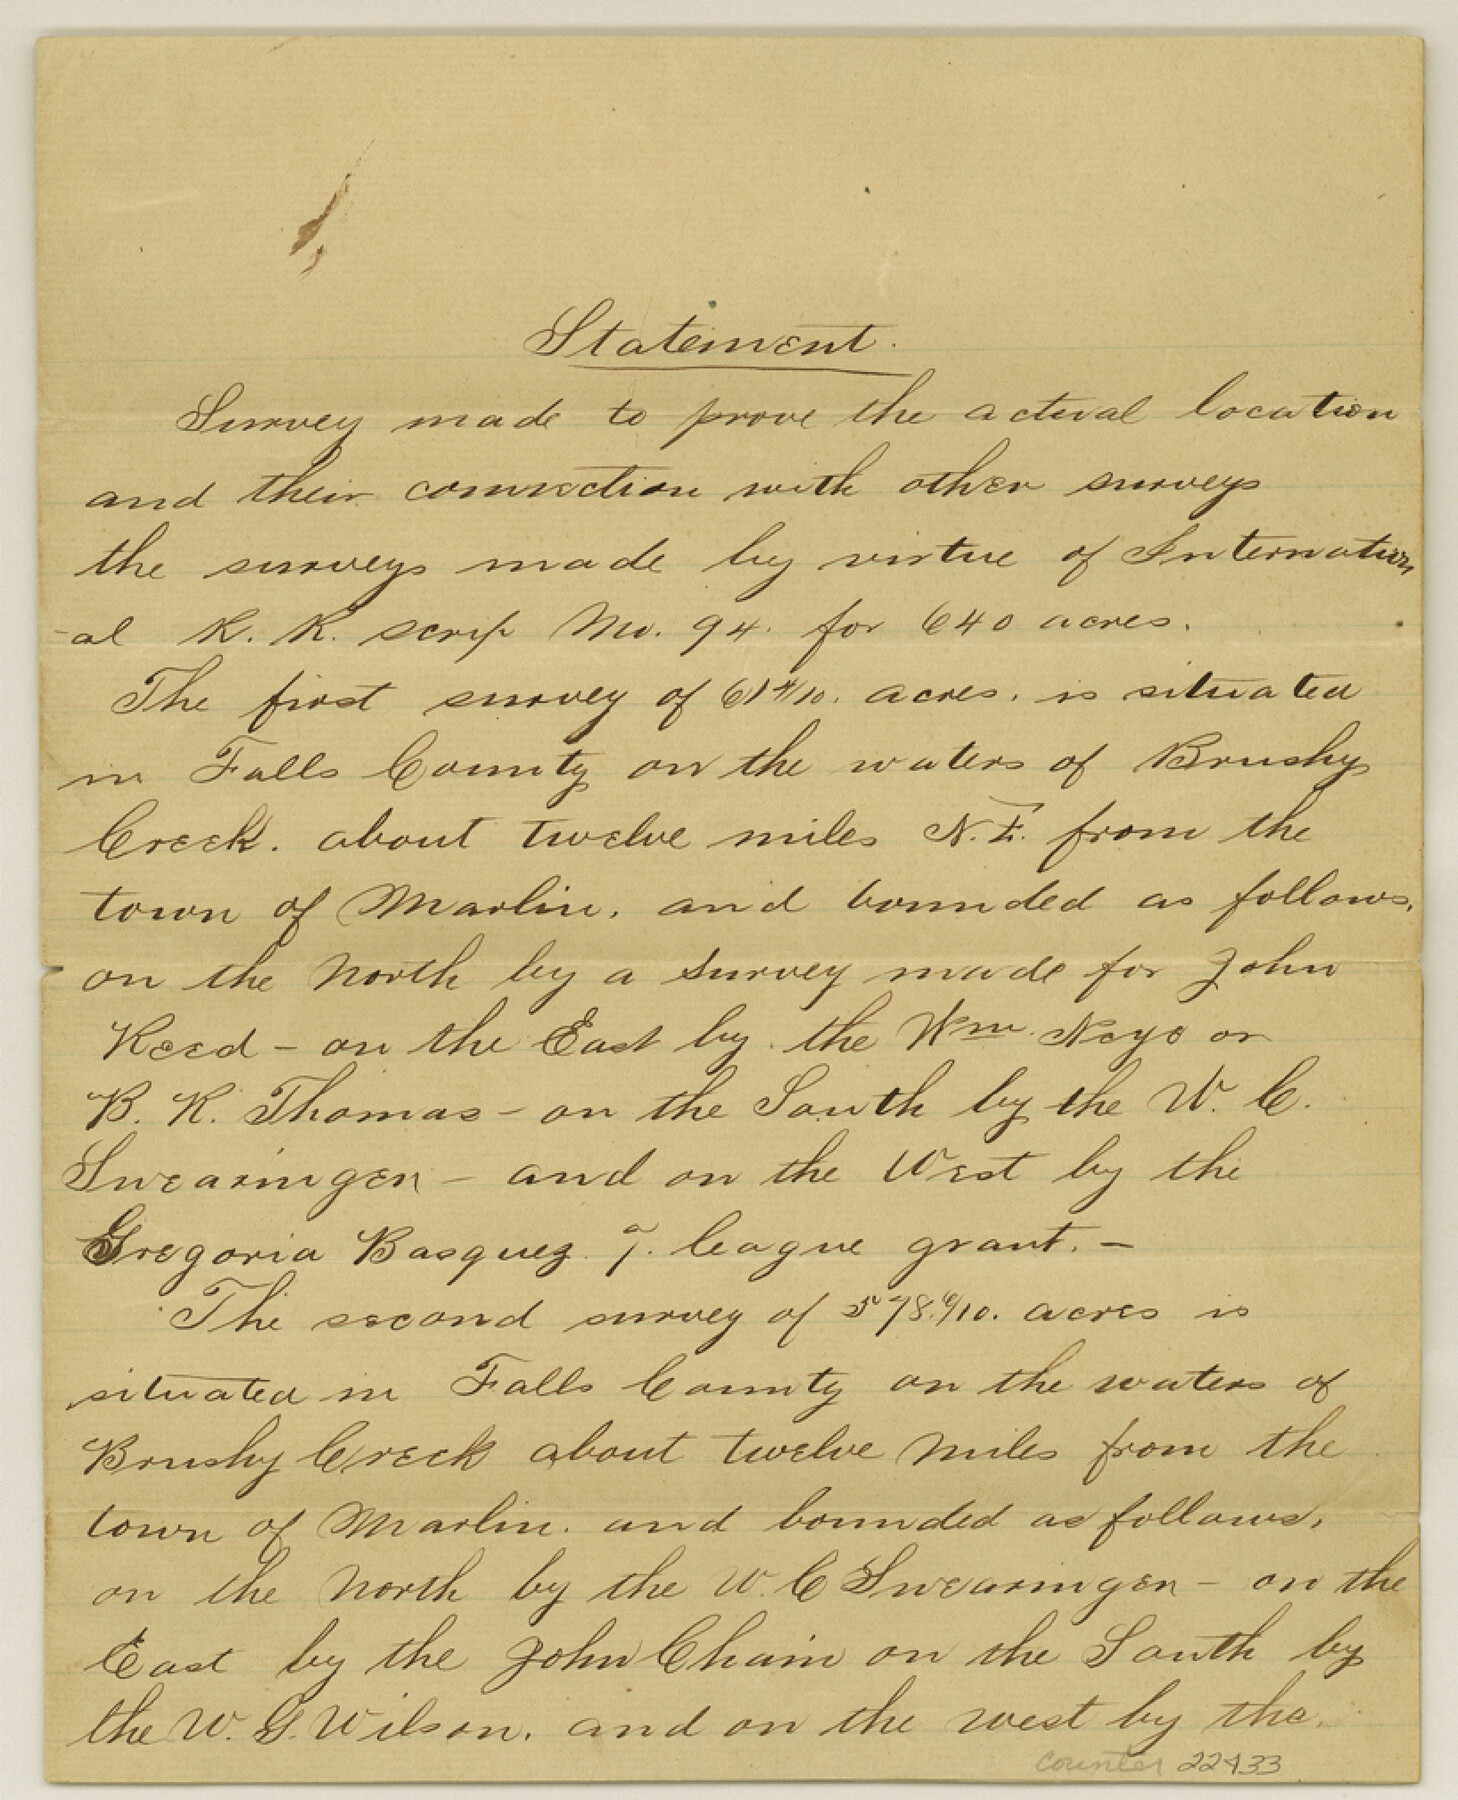 Statement.
Survey made to prove the actual location
and their connection with other surveys
the surveys made by virtue of Internation
-al R. R. scrip No. 94. for 640 acres.
The first survey of 61 4/10. acres. is situated
in Falls County on the waters of Brushy
Creek. about twelve miles N.E. from the
town of Marlin. and bounded as follows.
on the North by a survey made for John
Reed - on the East by the Wm. Neye or
B. R. Thomas - on the South by the W. C.
Swearingen - and on the West by the
Gregoria Basquez 7. league grant. -
The second survey of 578.6/10. acres is
situated in Falls County on the waters of
Brushy Creek about twelve miles from the
town of Marlin. and bounded as follows.
on the North by the W. C Swearingen - on the
East by the John Chain on the South by
the W. G. Wilson. and on the west by the.
counter 22433